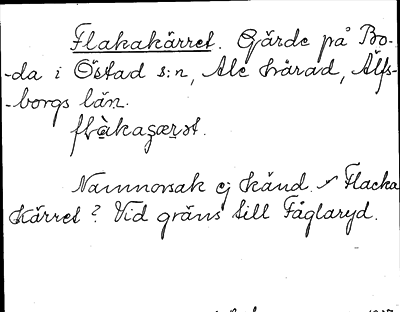 Flakakärret. Gärde på Bo-
-da i Östad s:n, Ale härad, Älfs-
-borgs län.
Namnorsak ej känd. Flacka
Kärret? Vid gräns till Fåglaryd.